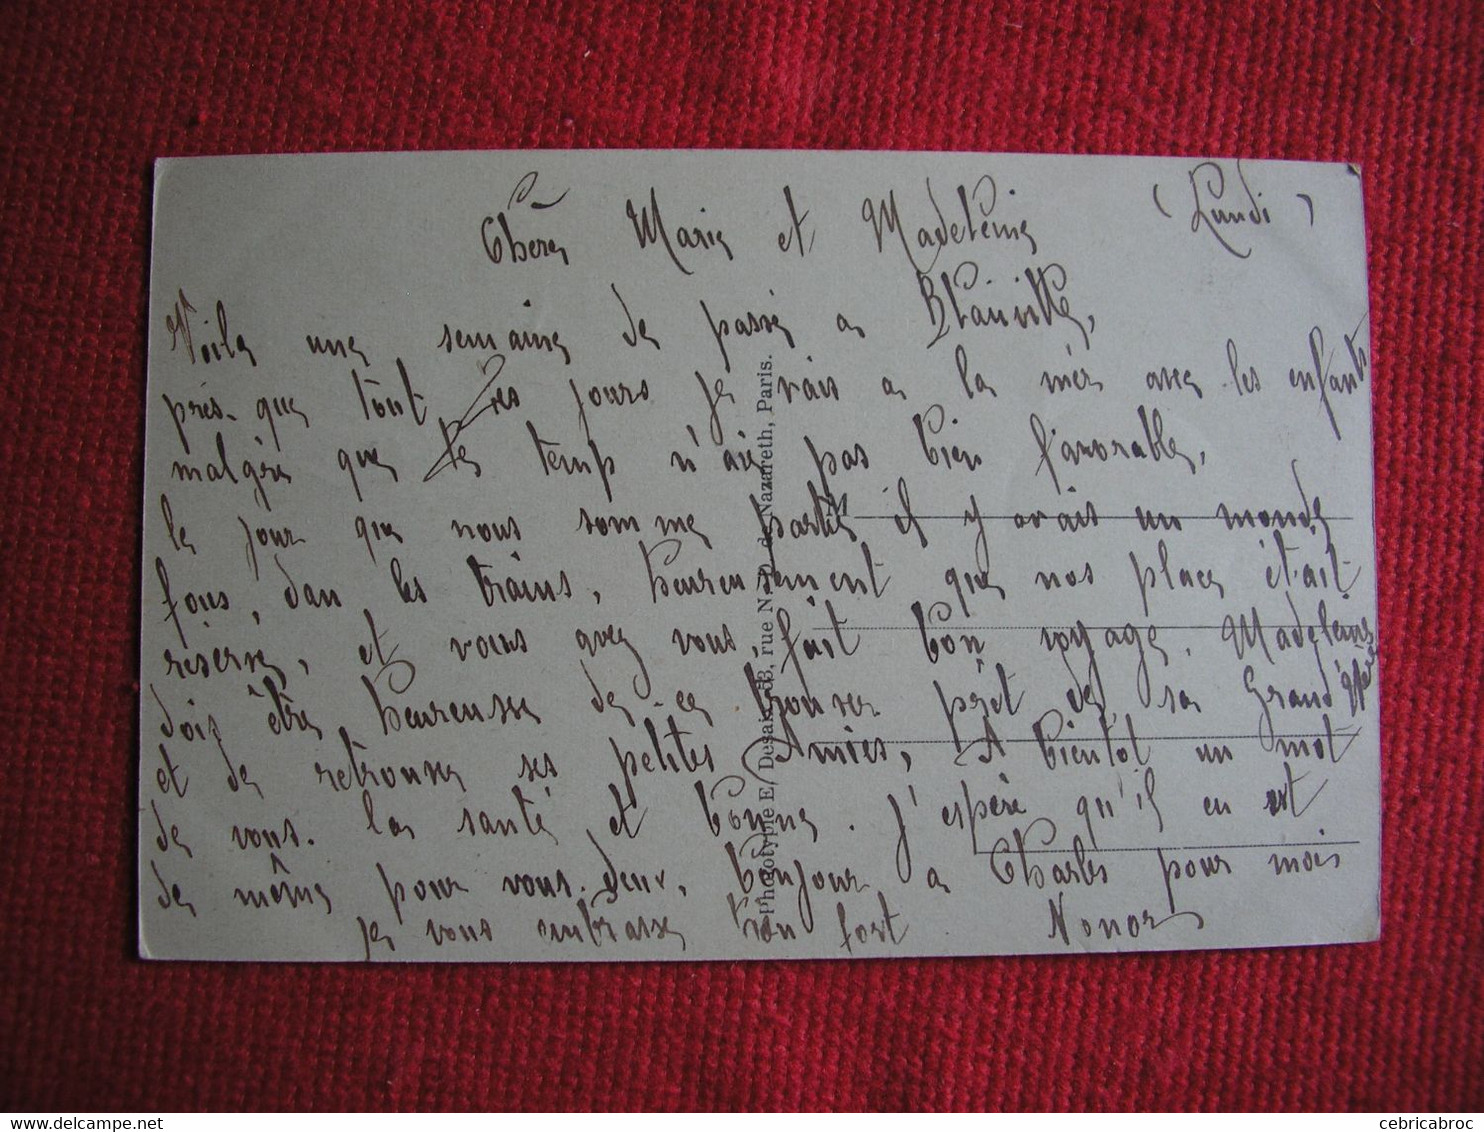 (Lundi)
Chère Marie et Madeleine
Voila une semaine de passée a Blainville,
presque tout les jours je vais a la mer avec les enfants
malgré que le temp n'aie pas bien favorable,
le jour que nous somme partie il y avait un monde
fous, dan les trains, heureusement que nos place était
réserve, et vous avez vous, fait bon voyage. Madeleine
dois être heureuse de ce trouver prêt de sa Grand Mère
et de retrouver ses petites Amies, A bientot un mot
de vous. la santé et bonne. J'espère qu'il en est
de même pour vous deux, bonjour a Charles pour mois
je vous embrasse bien fort Nonor
Phototypie E. Desaix, 33, rue N.-D. de Nazareth, Paris.
cebricabroc